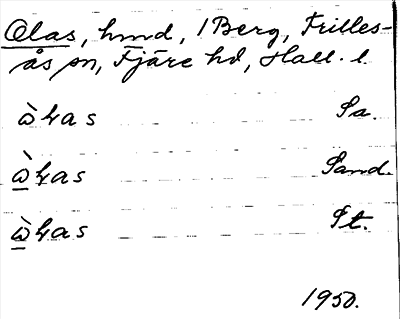 Olas, hmd, 1 Berg, Frilles-
ås sn, Fjäre hd, Hall. l.
ὼɫas Sa.
ὼɫas Sand.
ὼɫas St.
1950.